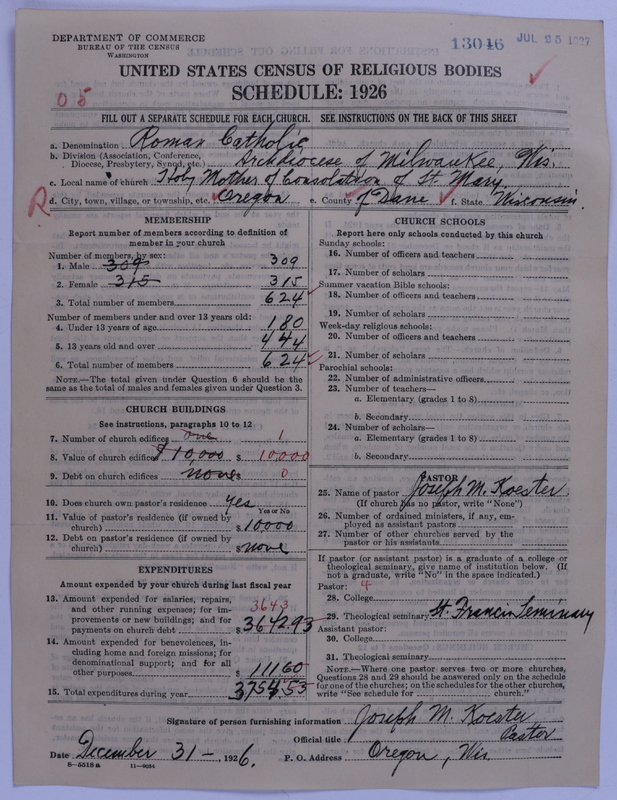 DEPARTMENT OF COMMERCE
BUREAU OF THE CENSUS
WASHINGTON
13046 JUL 25 1927
UNITED STATES CENSUS OF RELIGIOUS BODIES
SCHEDULE: 1926
05
FILL OUT A SEPARATE SCHEDULE FOR EACH CHURCH. SEE INSTRUCTIONS ON THE BACK OF THIS SHEET
a. Denomination Roman Catholic
b. Division (Association, Conference, Diocese, Presbytery, Synod, etc.) Archdiocese of Milwaukee, Wis.
c. Local name of church Holy Mother of Consolation of St. Mary
d. City, town, village, or township, etc. Oregon e. County of Dane f. State Wisconsin.
MEMBERSHIP
Report number of members according to definition of
member in your church
Number of members, by sex:
1. Male 309 309
2. Female 315 315
3. Total number of members 624
Number of members under and over 13 years old:
4. Under 13 years of age 180
5. 13 years old and over 444
6. Total number of members 624
NOTE.—The total given under Question 6 should be the
same as the total of males and females given under Question 3.
CHURCH BUILDINGS
See instructions, paragraphs 10 to 12
7. Number of church edifices one 1
8. Value of church edifices $10,000 $ 10,000
9. Debt on church edifices none $ 0
10. Does church own pastor's residence yes
Yes or No
11. Value of pastor's residence (if owned by
church) $ 10000
12. Debt on pastor's residence (if owned by
church) $ none
EXPENDITURES
Amount expended by your church during last fiscal year
13. Amount expended for salaries, repairs,
and other running expenses; for im-
provements or new buildings; and for
payments on church debt $ 3642.93
3643
14. Amount expended for benevolences, in-
cluding home and foreign missions; for
denominational support; and for all
other purposes $ 111.60
15. Total expenditures during year $
CHURCH SCHOOLS
Report here only schools conducted by this church
Sunday schools:
16. Number of officers and teachers
17. Number of scholars
Summer vacation Bible schools:
18. Number of officers and teachers
19. Number of scholars
Week-day religious schools:
20. Number of officers and teachers
21. Number of scholars
Parochial schools:
22. Number of administrative officers
23. Number of teachers—
a. Elementary (grades 1 to 8)
b. Secondary
24. Number of scholars—
a. Elementary (grades 1 to 8)
b. Secondary
PASTOR
25. Name of pastor Joseph M. Koester
(If church has no pastor, write "None")
26. Number of ordained ministers, if any, em-
ployed as assistant pastors
27. Number of other churches served by the
pastor or his assistants
If pastor (or assistant pastor) is a graduate of a college or
theological seminary, give name of institution below. (If
not a graduate, write "No" in the space indicated.)
Pastor: 4
28. College
29. Theological seminary St. Francis Seminary
Assistant pastor:
30. College
31. Theological seminary
NOTE.—Where one pastor serves two or more churches,
Questions 28 and 29 should be answered only on the schedule
for one of the churches; on the schedules for the other churches,
write "See schedule for church."
Signature of person furnishing information Joseph M. Koester
Official title Pastor
Date December 31 — , 1926. P. O. Address Oregon, Wis.
8—5518a 11—9054